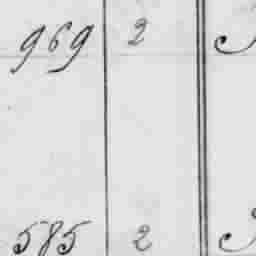 969 2
585 2